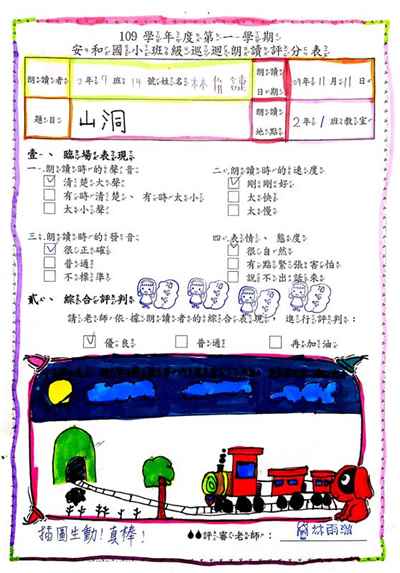 109 學年度第一學期
安和國小班級巡迴朗讀評分表
朗讀者 2年9班14號姓名林
朗讀日期 109年11月11日
題目 山洞
朗讀地點 2年1班教室
壹、臨場表現
一、朗讀時的聲音 二、朗讀時的速度
清楚大聲 剛剛好
有時清楚、有時太小 太快
太小聲 太慢
三、朗讀時的發音 四、表情、態度
很正確 很自然
普通 有點緊張害怕
不標準 說不出話來
貳、綜合評判
請老師依據朗讀者的綜合表現,進行評判
優良 普通 再加油
插圖生動!真棒!
評審老師: